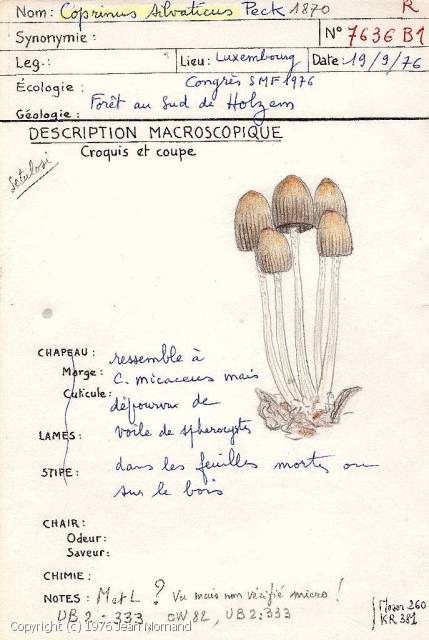 Nom: Coprinus silvaticus Peck 1870 R
Synonymie: N° 7636 B1
Leg.: Lieu: Luxembourg Date: 19/9/76
Écologie: Congrès SMF 1976
Forêt au Sud de Holzem
Géologie:
DESCRIPTION MACROSCOPIQUE
Croquis et coupe
Setulosi
CHAPEAU: ressemble à
Marge: C. micaceus mais
Cuticule: dépourvu de
LAMES: voile de spherocystes
STIPE: dans les feuilles mortes ou
sur le bois
CHAIR:
Odeur:
Saveur:
CHIMIE:
NOTES: M et L ? Vu mais non vérifié micro !
UB 2 : 333 OW 82, UB 2:333
Moser 260
KR 381
Copyright (c) 1976 Jean Mornand